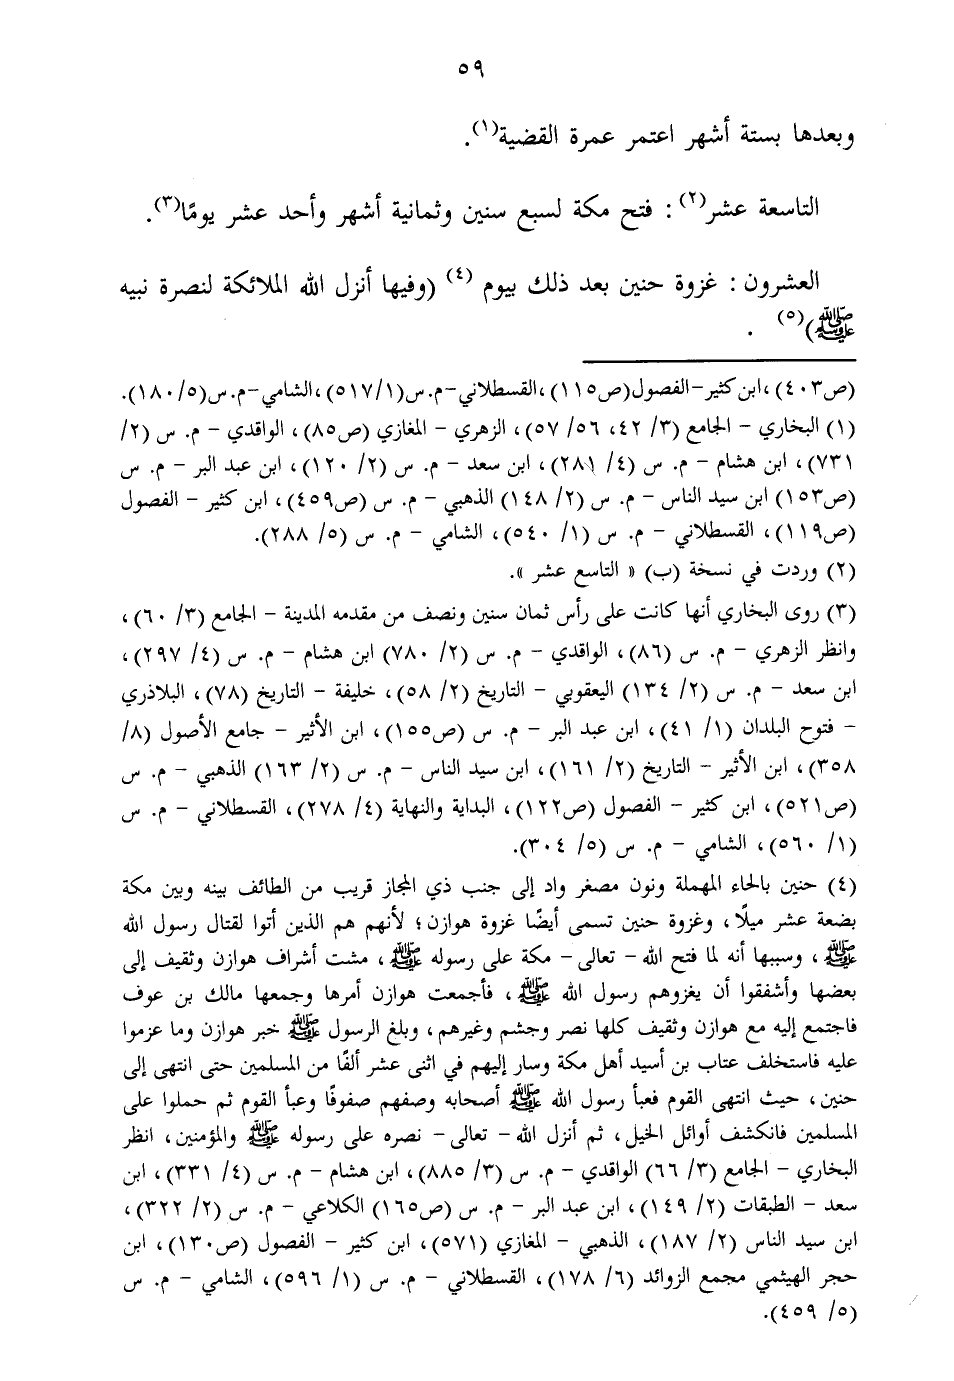 ٥٩
وبعدها بستة أشهر اعتمر عمرة القضية(١).
التاسعة عشر(٢) : فتح مكة لسبع سنين وثمانية أشهر وأحد عشر يومًا(٣).
العشرون : غزوة حنين بعد ذلك بيوم (٤) (وفيها أنزل الله الملائكة لنصرة نبيه
ﷺ)(٥) .
(ص٤٠٣)، ابن كثير-الفصول(ص١١٥)، القسطلاني-م.س(٥١٧/١)، الشامي-م.س(١٨٠/٥).
(١) البخاري - الجامع (٣/ ٤٢، ٥٦/ ٥٧)، الزهري - المغازي (ص٨٥)، الواقدي - م. س (٢/
٧٣١)، ابن هشام - م. س (٤/ ٢٨١)، ابن سعد - م. س (٢/ ١٢٠)، ابن عبد البر - م. س
(ص١٥٣) ابن سيد الناس - م. س (٢/ ١٤٨) الذهبي - م. س (ص٤٥٩)، ابن كثير - الفصول
(ص١١٩)، القسطلاني - م. س (١/ ٥٤٠)، الشامي - م. س (٥/ ٢٨٨).
(٢) وردت في نسخة (ب) « التاسع عشر ».
(٣) روى البخاري أنها كانت على رأس ثمان سنين ونصف من مقدمه المدينة - الجامع (٣/ ٦٠)،
وانظر الزهري - م. س (٨٦)، الواقدي - م. س (٢/ ٧٨٠) ابن هشام - م. س (٤/ ٢٩٧)،
ابن سعد - م. س (٢/ ١٣٤) اليعقوبي - التاريخ (٢/ ٥٨)، خليفة - التاريخ (٧٨)، البلاذري
- فتوح البلدان (١/ ٤١)، ابن عبد البر - م. س (ص١٥٥)، ابن الأثير - جامع الأصول (٨/
٣٥٨)، ابن الأثير - التاريخ (٢/ ١٦١)، ابن سيد الناس - م. س (٢/ ١٦٣) الذهبي - م. س
(ص٥٢١)، ابن كثير - الفصول (ص١٢٢)، البداية والنهاية (٤/ ٢٧٨)، القسطلاني - م. س
(١/ ٥٦٠)، الشامي - م. س (٥/ ٣٠٤).
(٤) حنين بالحاء المهملة ونون مصغر واد إلى جنب ذي المجاز قريب من الطائف بينه وبين مكة
بضعة عشر ميلًا، وغزوة حنين تسمى أيضًا غزوة هوازن؛ لأنهم هم الذين أتوا لقتال رسول الله
ﷺ، وسببها أنه لما فتح الله - تعالى - مكة على رسوله ﷺ، مشت أشراف هوازن وثقيف إلى
بعضها وأشفقوا أن يغزوهم رسول الله ﷺ، فأجمعت هوازن أمرها وجمعها مالك بن عوف
فاجتمع إليه مع هوازن وثقيف كلها نصر وجشم وغيرهم، وبلغ الرسول ﷺ خبر هوازن وما عزموا
عليه فاستخلف عتاب بن أسيد أهل مكة وسار إليهم في اثنى عشر ألفًا من المسلمين حتى انتهى إلى
حنين، حيث انتهى القوم فعبأ رسول الله ﷺ أصحابه وصفهم صفوفًا وعبأ القوم ثم حملوا على
المسلمين فانكشف أوائل الخيل، ثم أنزل الله - تعالى - نصره على رسوله ﷺ والمؤمنين، انظر
البخاري - الجامع (٣/ ٦٦) الواقدي - م. س (٣/ ٨٨٥)، ابن هشام - م. س (٤/ ٣٣١)، ابن
سعد - الطبقات (٢/ ١٤٩)، ابن عبد البر - م. س (ص١٦٥) الكلاعي - م. س (٢/ ٣٢٢)،
ابن سيد الناس (٢/ ١٨٧)، الذهبي - المغازي (٥٧١)، ابن كثير - الفصول (ص١٣٠)، ابن
حجر الهيثمي مجمع الزوائد (٦/ ١٧٨)، القسطلاني - م. س (١/ ٥٩٦)، الشامي - م. س
(٥/ ٤٥٩).